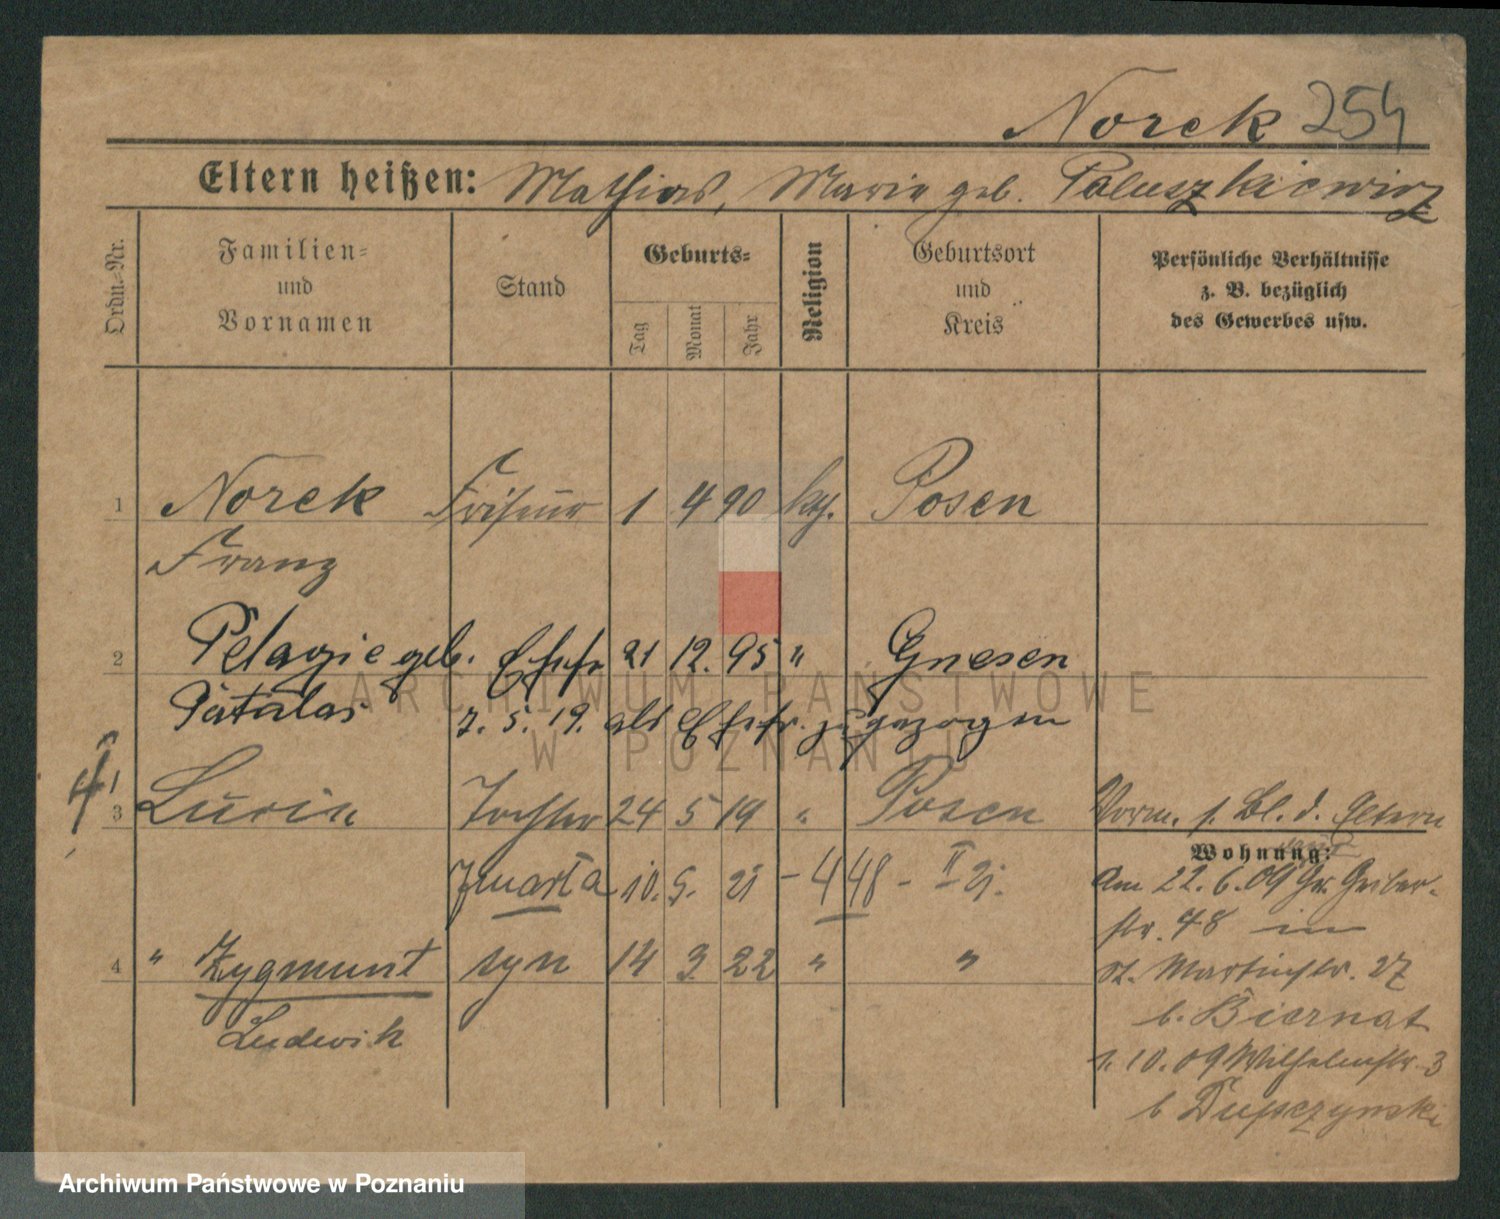 Norek 254
Eltern heißen: Mathias, Marie geb. Paluszkiewicz
Ordn.-Nr.
Familien- und Vornamen
Stand
Geburts-
Tag
Monat
Jahr
Religion
Geburtsort und Kreis
Persönliche Verhältnisse z. B. bezüglich des Gewerbes usw.
1 Norek Friseur 1 4 90 kth. Posen
Franz
2 Pelagie geb. Ehefr 21 12. 95 " Gnesen
Patalas 7. 5. 19. als Ehefr. zugezogen
3 Lucin Tochter 24 5 19 " Posen Vorm. s. Bl. d. Eltern
Wohnung:
zmarła 10. 5. 21 - 4 48 - II 21. Am 22. 6. 09 Gr. Gerber-
str. 48 in
4 " Zygmunt syn 14 3 22 " " St. Martinstr. 27
Ludwik b. Biernat
1. 10. 09 Wilhelmstr. 3
b
ARCHIWUM PAŃSTWOWE
W POZNANIU
Archiwum Państwowe w Poznaniu